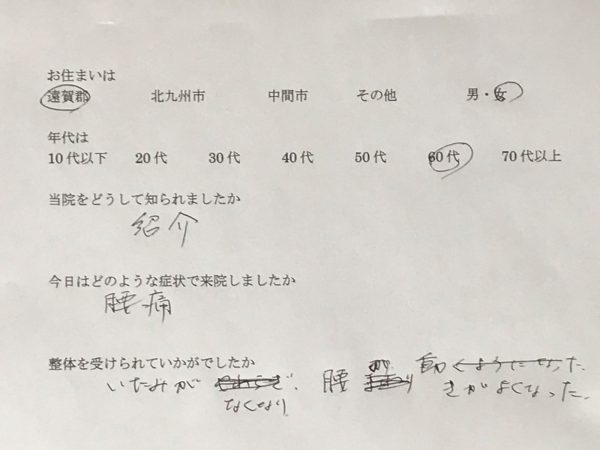 お住まいは
遠賀郡 北九州市 中間市 その他 男・女
年代は
10代以下 20代 30代 40代 50代 60代 70代以上
当院をどうして知られましたか
紹介
今日はどのような症状で来院しましたか
腰痛
整体を受けられていかがでしたか
いたみが なくなり、腰が 動くようになった
きがよくなった。